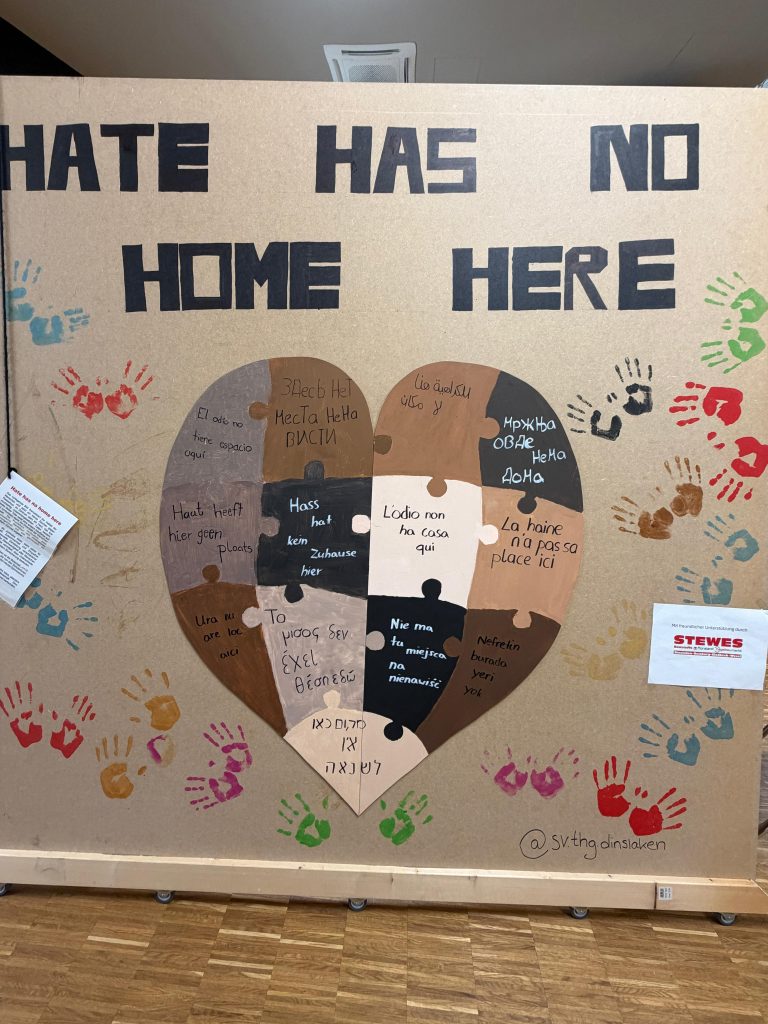 HATE HAS NO
HOME HERE
El odio no
tiene espacio
aquí
Здесь Нет
Места Нена
висти
لا مكان
للكراهية هنا
Мржња
Овде
Нема
Дома
Haat heeft
hier geen
plaats
Hass
hat
kein
Zuhause
hier
L'odio non
ha casa
qui
La haine
n'a pas sa
place ici
Ura nu
are loc
aici
Το
μισος δεν
έχει
θέση εδώ
Nie ma
tu miejsca
na
nienawiść
Nefretin
burada
yeri
yok
מקום כאן
אין
לשנאה
Hate has no home here
Mit freundlicher Unterstützung durch:
STEWES
@sv.thgdinslaken